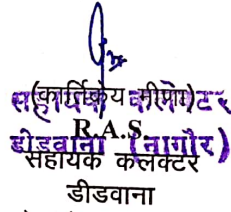 (कार्तिकेय मीणा)
R.A.S.
सहायक कलेक्टर
डीडवाना (नागौर)
सहायक कलेक्टर
डीडवाना